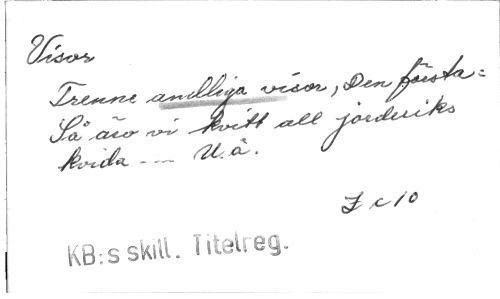 Visor
Trenne andliga visor, Den första:
Så äro vi kvitt all jorderiks
kvida --- U.å.
F c 10
KB:s skill. Titelreg.